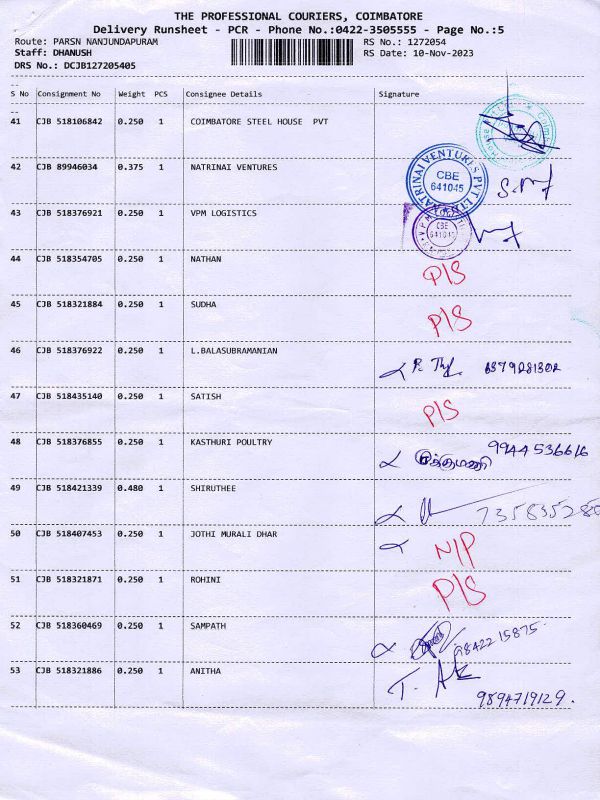 THE PROFESSIONAL COURIERS, COIMBATORE
Delivery Runsheet - PCR - Phone No.:0422-3505555 - Page No.:5
Route: PARSN NANJUNDAPURAM RS No.: 1272054
Staff: DHANUSH RS Date: 10-Nov-2023
DRS No.: DCJB127205405
S No Consignment No Weight PCS Consignee Details Signature
41 CJB 518106842 0.250 1 COIMBATORE STEEL HOUSE PVT
42 CJB 89946034 0.375 1 NATRINAI VENTURES
NATRINAI VENTURES PVT LTD
CBE
641045
43 CJB 518376921 0.250 1 VPM LOGISTICS
CBE
44 CJB 518354705 0.250 1 NATHAN P/S
45 CJB 518321884 0.250 1 SUDHA P/S
46 CJB 518376922 0.250 1 L.BALASUBRAMANIAN 6379281302
47 CJB 518435140 0.250 1 SATISH P/S
48 CJB 518376855 0.250 1 KASTHURI POULTRY 9944536616
49 CJB 518421339 0.480 1 SHIRUTHEE 735835280
50 CJB 518407453 0.250 1 JOTHI MURALI DHAR N/P
51 CJB 518321871 0.250 1 ROHINI P/S
52 CJB 518360469 0.250 1 SAMPATH 9842215875
53 CJB 518321886 0.250 1 ANITHA 9894719129.